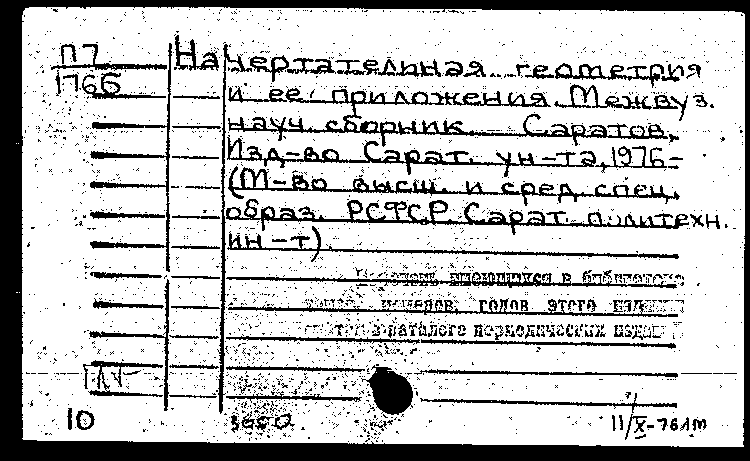 П7
1766
Начертательная геометрия
и ее приложения. Межвуз.
науч. сборник. Саратов,
Изд-во Сарат. ун-та, 1976-
(М-во высш. и сред. спец.
образ. РСФСР. Сарат. политехн.
ин-т).
имеющихся в библиотеке
номеров, годов этого изд
в каталоге периодических изда
10
11/X-76